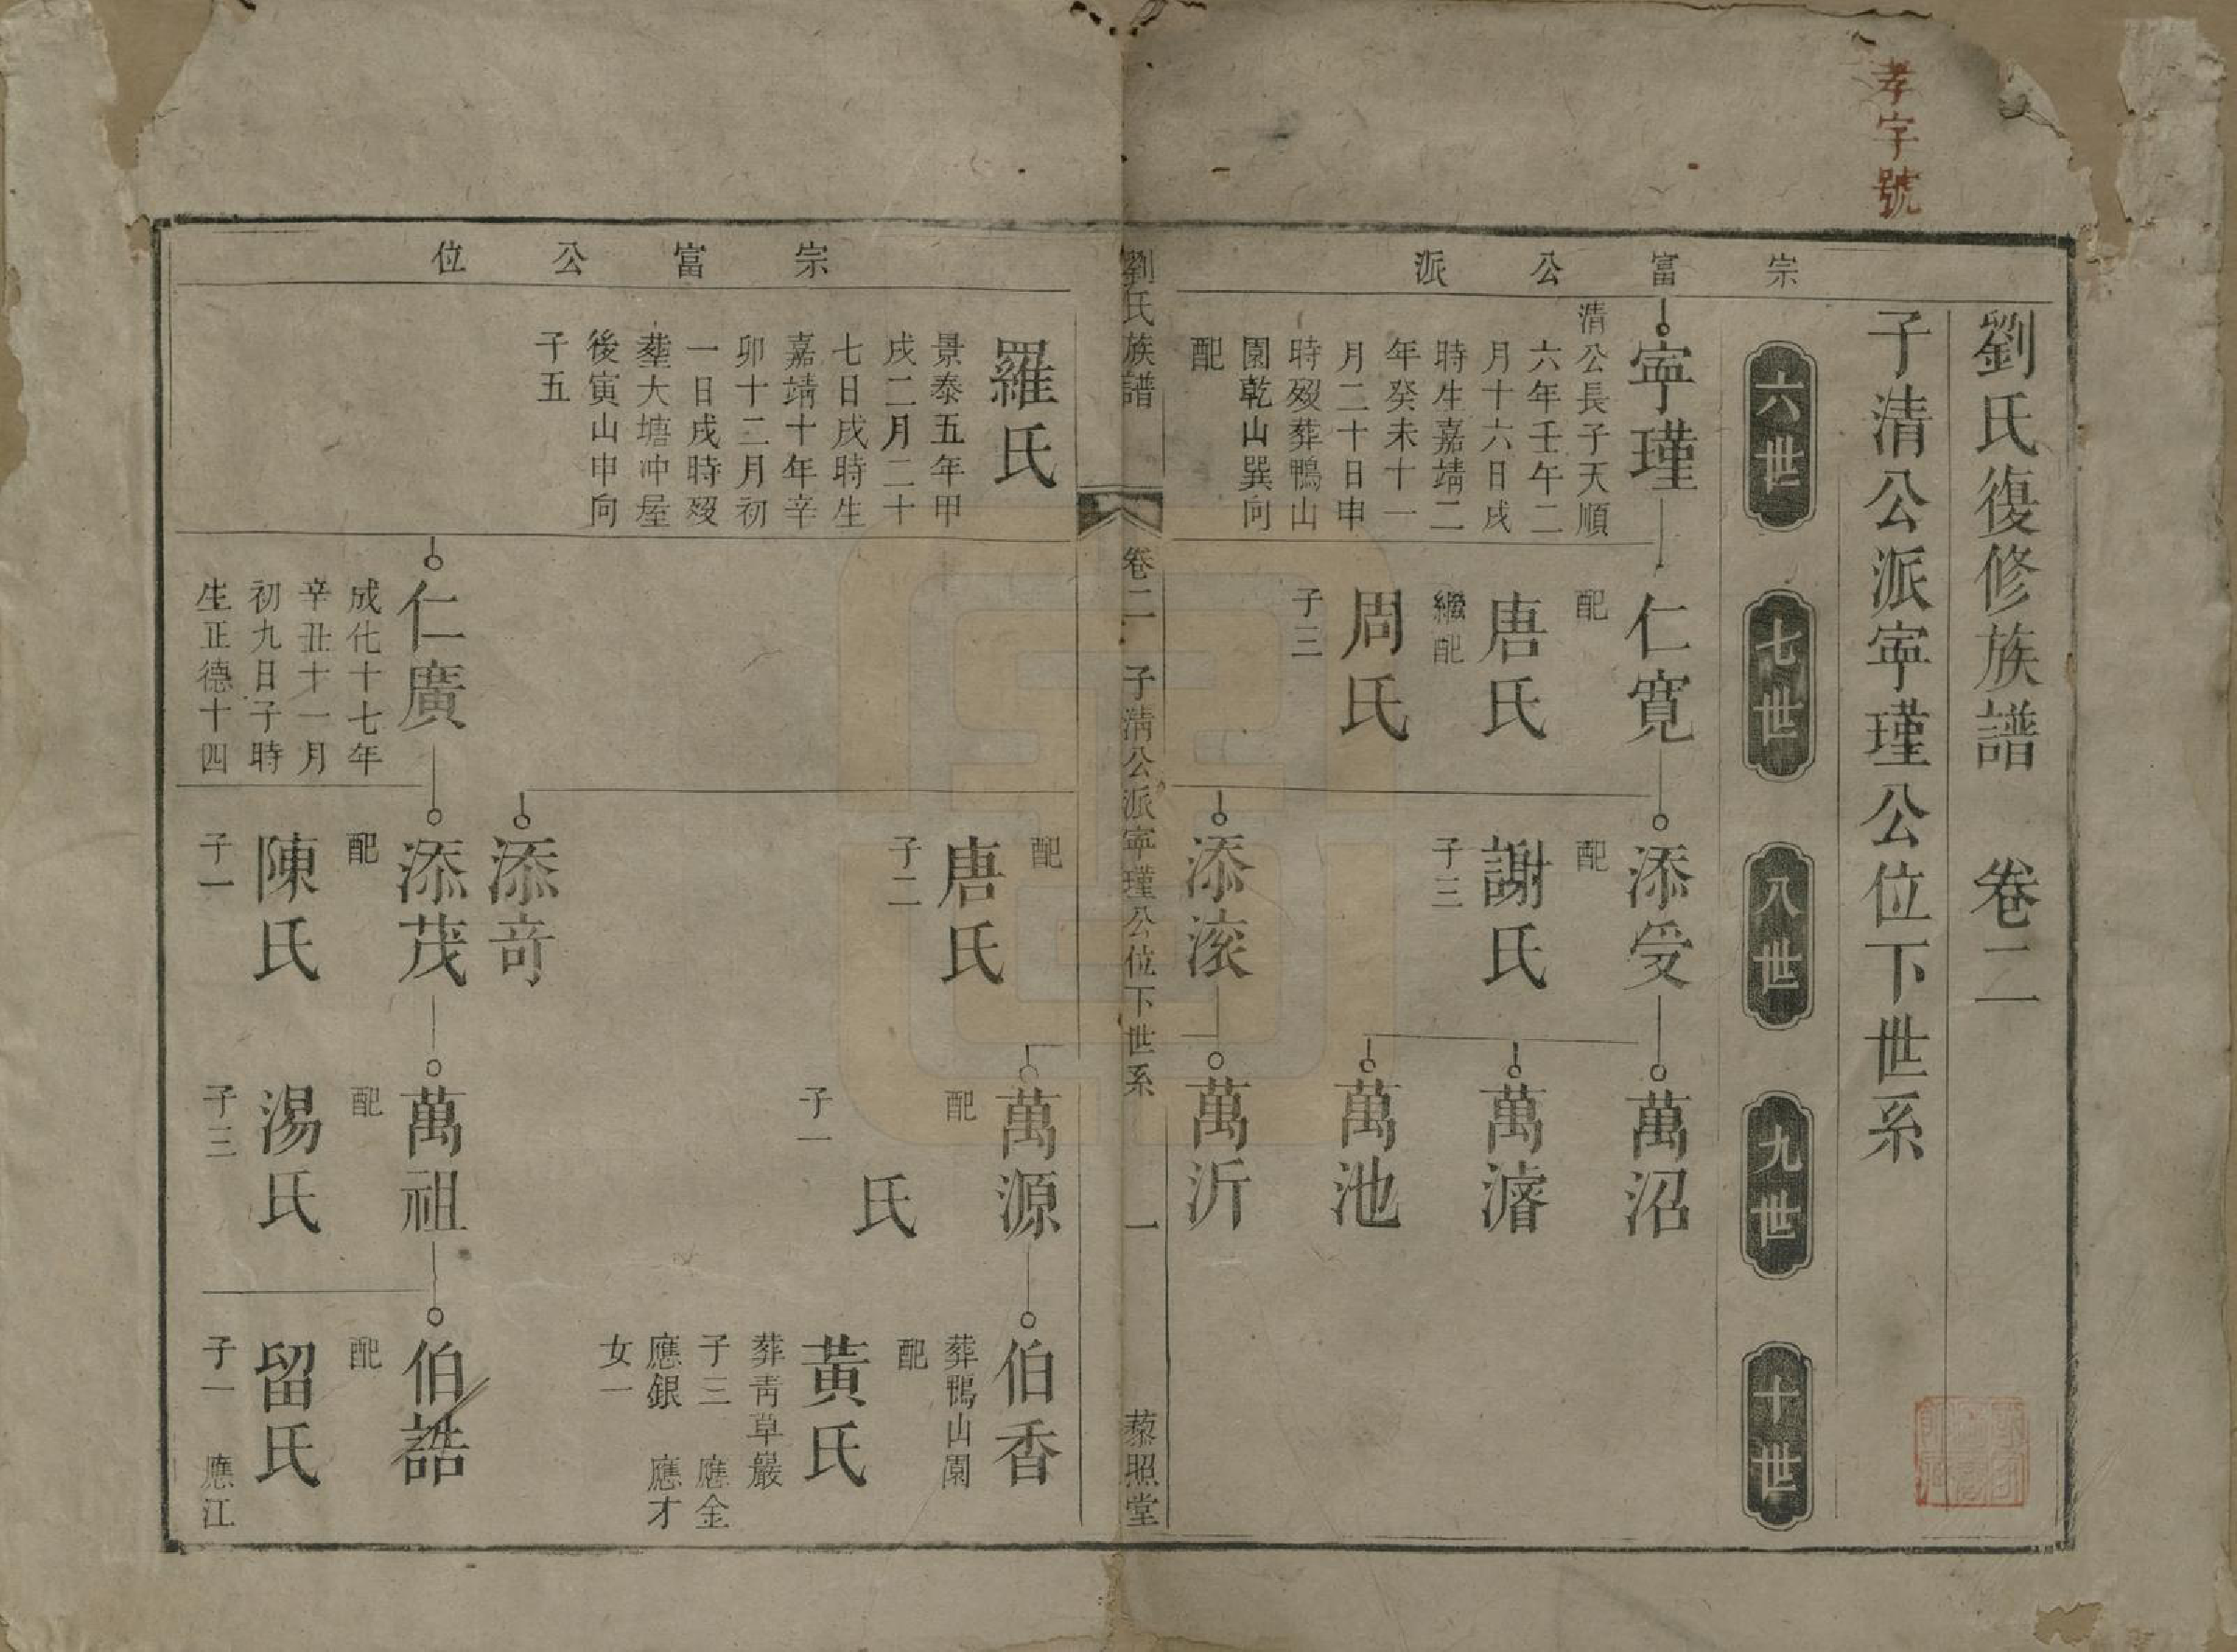 孝字號
劉氏復修族譜 卷二
子清公派寜瑾公位下世系
六世
七世
八世
九世
十世
宗富公派
寜瑾
清公長子天順
六年壬午二
月十六日戌
時生嘉靖二
年癸未十一
月二十日申
時歿葬鴨山
園乾山巽向
配
仁寛
配
唐氏
繼配
周氏
子三
添受
配
謝氏
子三
添滚
萬沼
萬濬
萬池
萬沂
劉氏族譜
卷二
子清公派寜瑾公位下世系
一
藜照堂
宗富公位
羅氏
景泰五年甲
戌二月二十
七日戌時生
嘉靖十年辛
卯十二月初
一日戌時歿
塟大塘冲屋
後寅山申向
子五
仁廣
成化十七年
辛丑十一月
初九日子時
生正德十四
配
唐氏
子二
添奇
添茂
配
陳氏
子一
萬源
配
氏
子一
萬祖
配
湯氏
子三
伯香
葬鴨山園
配
黃氏
葬靑草嚴
子三 應金
應銀 應才
女一
伯誥
配
留氏
子一 應江